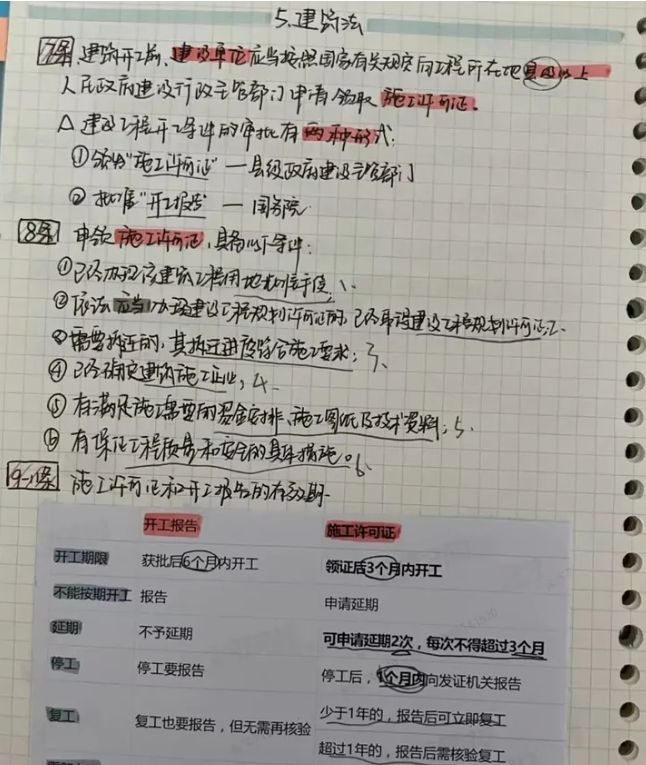 5.建筑法
7条 建筑开工前,建设单位应当按照国家有关规定向工程所在地县级以上
人民政府建设行政主管部门申请领取施工许可证。
△ 建设工程开工条件的审批有两种形式:
①颁发"施工许可证" — 县级政府建设主管部门
② 批准"开工报告" — 国务院
8条 申领施工许可证,具备以下条件:
①已经办理该建筑工程用地批准手续,1、
②依法应当办理建设工程规划许可证的,已经取得建设工程规划许可证;2、
③需要拆迁的,其拆迁进度符合施工要求;3、
④已经确定建筑施工企业;4、
⑤有满足施工需要的资金安排、施工图纸及技术资料;5、
⑥有保证工程质量和安全的具体措施。6、
9-11条 施工许可证和开工报告的有效期.
开工报告 施工许可证
开工期限 获批后6个月内开工 领证后3个月内开工
不能按期开工 报告 申请延期
延期 不予延期 可申请延期2次，每次不得超过3个月
停工 停工要报告 停工后，1个月内向发证机关报告
复工 复工也要报告，但无需再核验 少于1年的，报告后可立即复工
超过1年的，报告后需核验复工